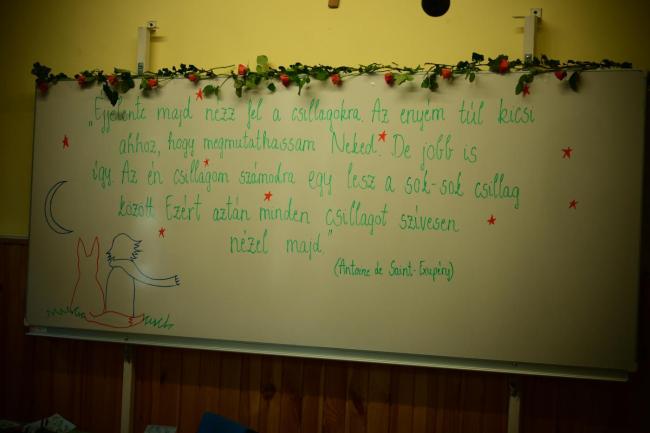 „Éjjelente majd nézz fel a csillagokra. Az enyém túl kicsi
ahhoz, hogy megmutathassam Neked. De jobb is
így. Az én csillagom számodra egy lesz a sok-sok csillag
között. Ezért aztán minden csillagot szívesen
nézel majd."
(Antoine de Saint-Exupéry)